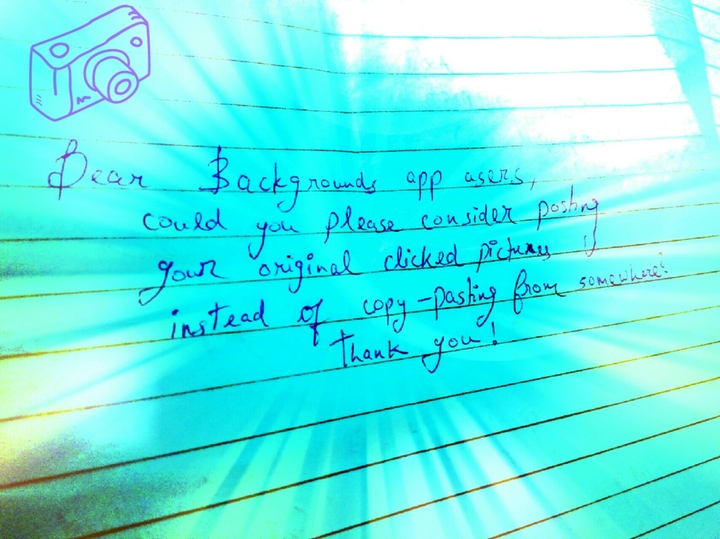 Dear Backgrounds app users,
could you please consider posting
your original clicked pictures
instead of copy-pasting from somewhere!
Thank you!